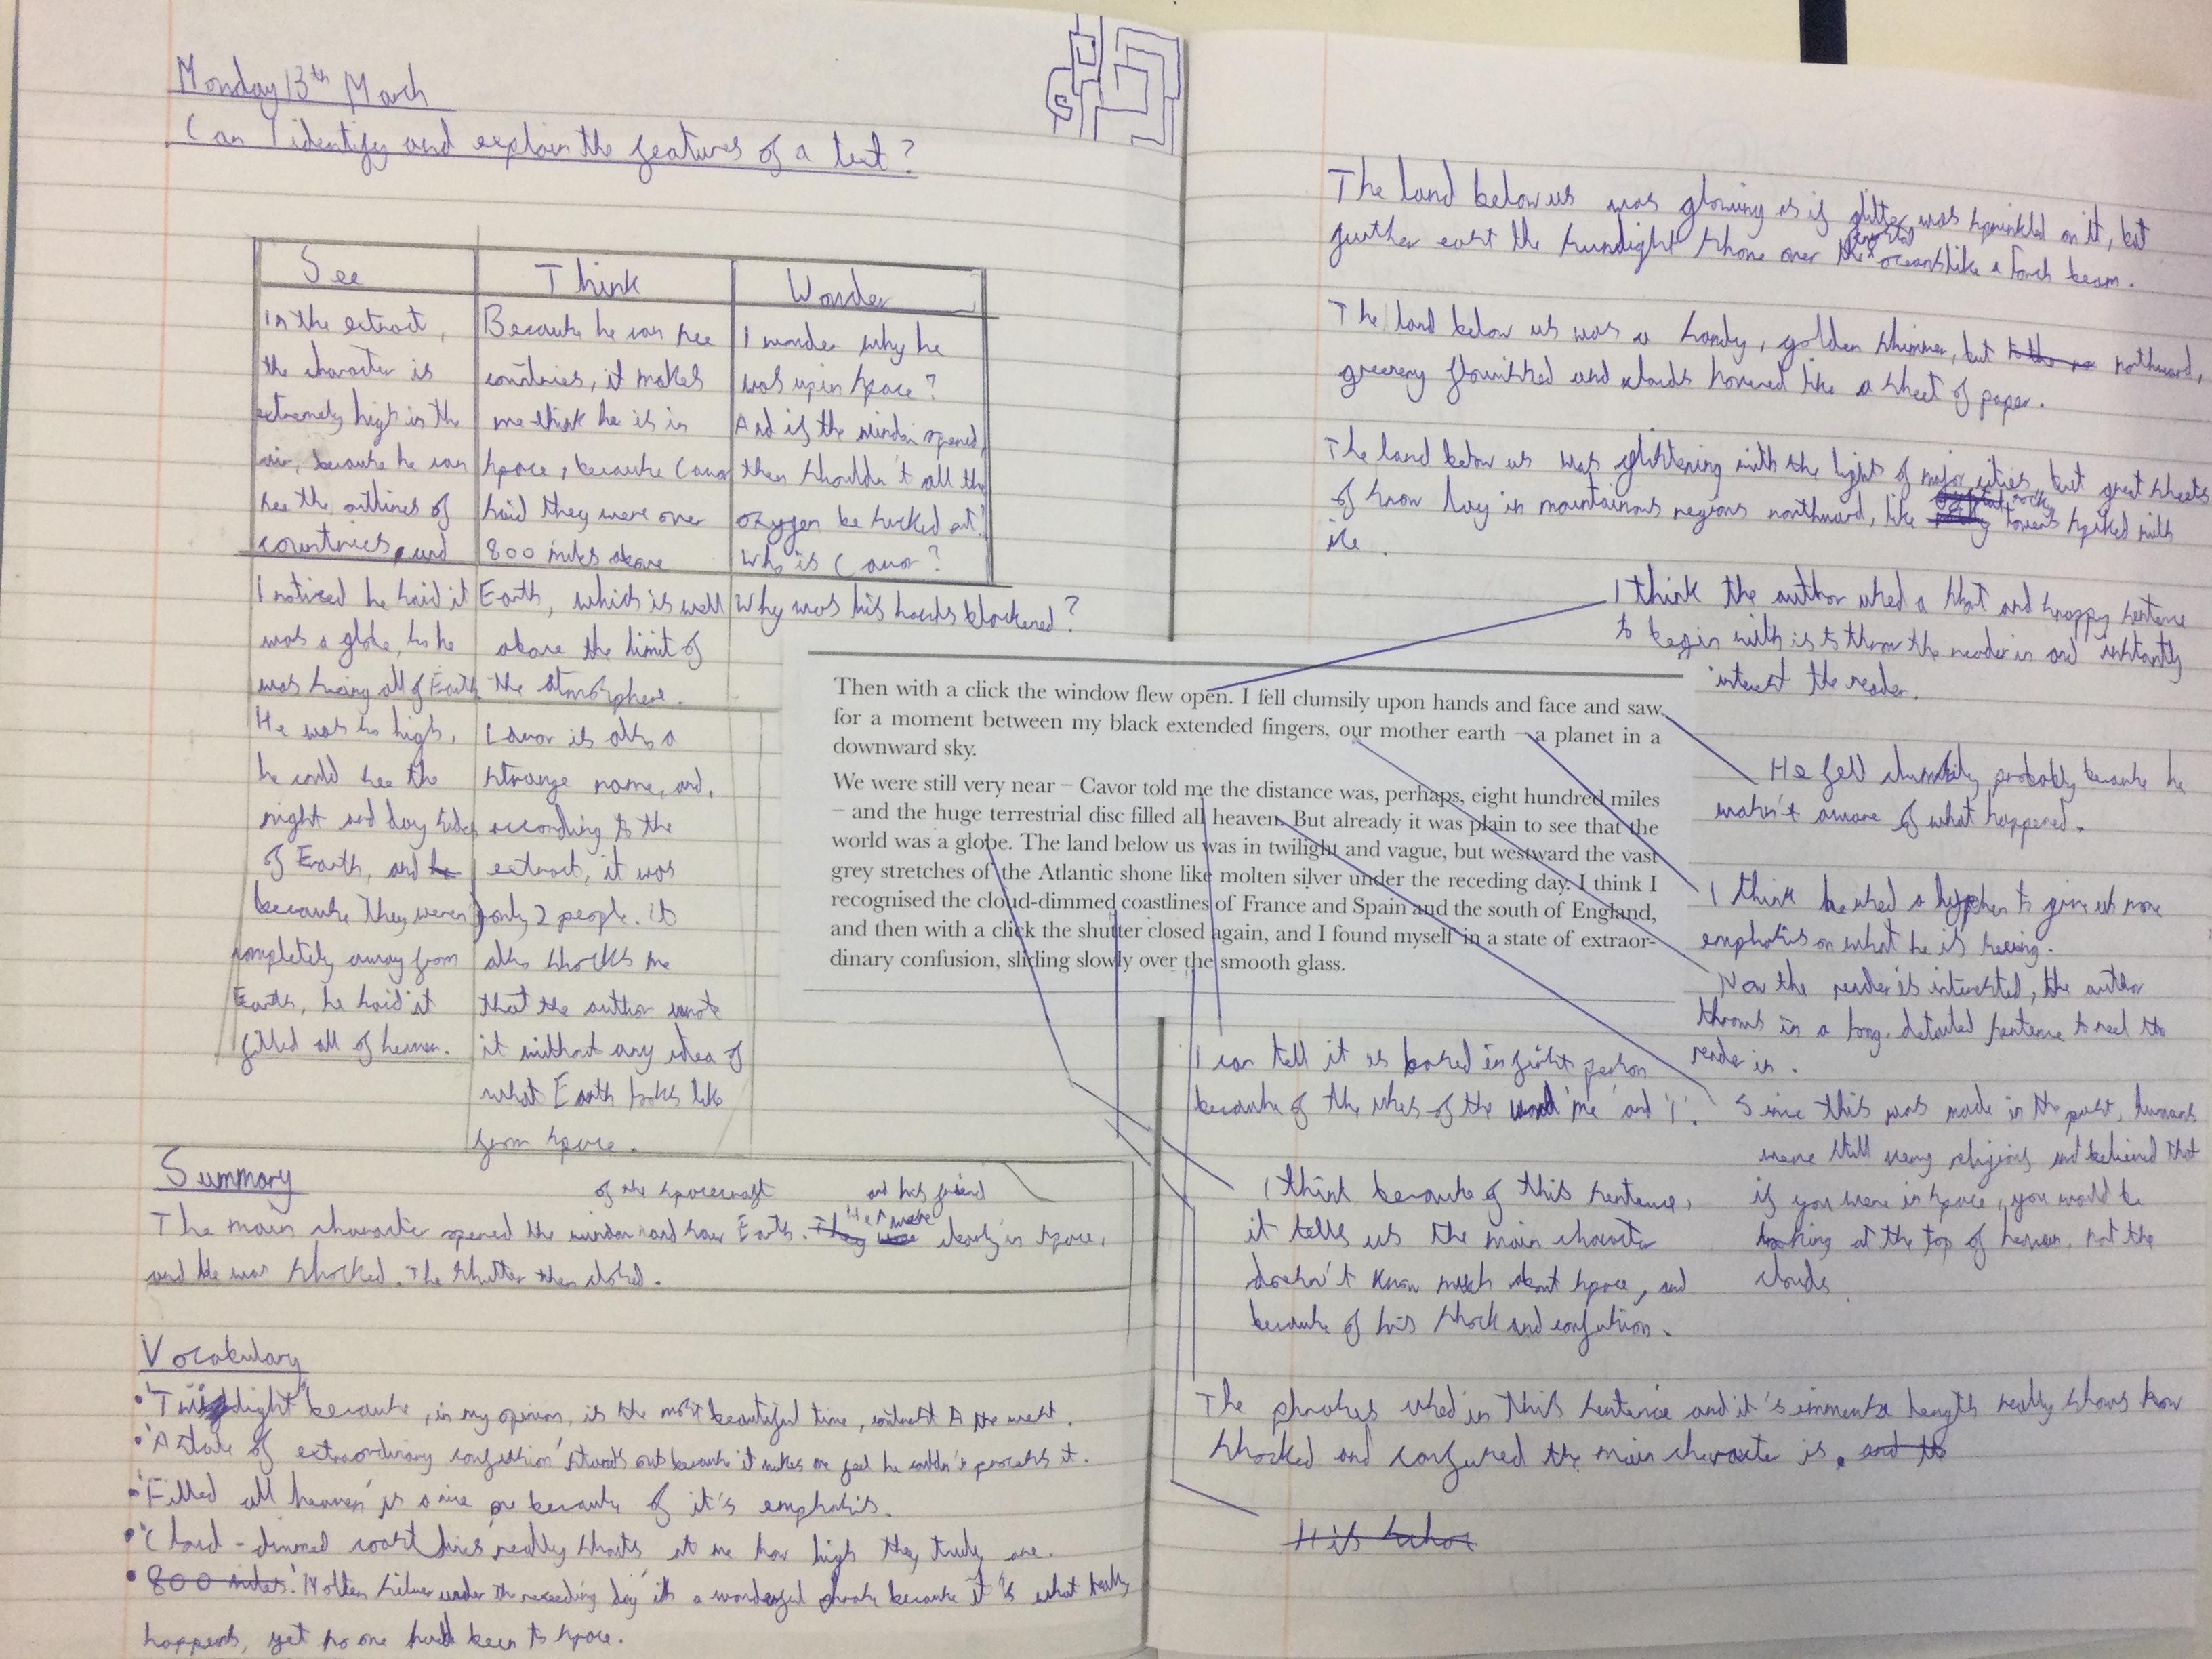 Monday 13th March
Can I identify and explain the features of a text?
See
In the extract,
the character is
extremely high in the
air, because he can
see the outlines of
countries, and
I noticed he said it
was a globe, so he
was seeing all of Earth.
He was so high,
he could see the
night and day sides
of Earth, and he
because they weren't
completely away from
Earth, he said it
filled all of heaven.
Think
Because he can see
countries, it makes
me think he is in
space, because Cavor
said they were over
800 miles above
Earth, which is well
above the limit of
the atmosphere.
Cavor is also a
strange name, and,
according to the
extract, it was
only 2 people. it
also shocks me
that the author wrote
it without any idea of
what Earth looks like
from space.
Wonder
I wonder why he
was up in space?
And if the window opened,
then shouldn't all the
oxygen be sucked out?
Who is Cavor?
Why was his hands blackened?
Summary
of the spacecraft and his friend
The main character opened the window and saw Earth. They were He were clearly in space,
and he was shocked. The shutter then closed.
Vocabulary
• 'Twilight' because, in my opinion, is the most beautiful time, contrast to the west.
• 'A state of extraordinary confusion' stands out because it makes me feel he couldn't process it.
• 'Filled all heaven' is a nice one because of it's emphasis.
• 'Cloud-dimmed coastlines' really shouts at me how high they truly are.
• 800 miles. 'Molten silver under the receeding day' it's a wonderful phrase because it is what really
happens, yet no one had been to space.
The land below us was glowing as if glitter was sprinkled on it, but
further east the sunlight shone over the oceans like a torch beam.
The land below us was a sandy, golden shimmer, but to the no northward,
greenery flourished and clouds hovered like a sheet of paper.
The land below us was glistening with the light of major cities, but great sheets
of snow lay in mountainous regions northward, like rocky towers spiked with
ice.
I think the author used a shot and snappy sentence
to begin with is to throw the reader in and instantly
interest the reader.
Then with a click the window flew open. I fell clumsily upon hands and face and saw
for a moment between my black extended fingers, our mother earth – a planet in a
downward sky.
We were still very near – Cavor told me the distance was, perhaps, eight hundred miles
– and the huge terrestrial disc filled all heaven. But already it was plain to see that the
world was a globe. The land below us was in twilight and vague, but westward the vast
grey stretches of the Atlantic shone like molten silver under the receding day. I think I
recognised the cloud-dimmed coastlines of France and Spain and the south of England,
and then with a click the shutter closed again, and I found myself in a state of extraor-
dinary confusion, sliding slowly over the smooth glass.
He fell clumsily, probably because he
wasn't aware of what happened.
I think he used a hyphen to give us more
emphasis on what he is seeing.
Now the reader is interested, the author
throws in a long, detailed sentence to reel the
reader in.
I can tell it is based in first person
because of the uses of the word 'me' and 'I'.
Since this was made in the past, humans
were still very religious and believed that
if you were in space, you would be
looking at the top of heaven, not the
clouds.
I think because of this sentence,
it tells us the main character
doesn't know much about space, and
because of his shock and confusion.
The phrases used in this sentence and it's immense length really shows how
shocked and confused the main character is. and the